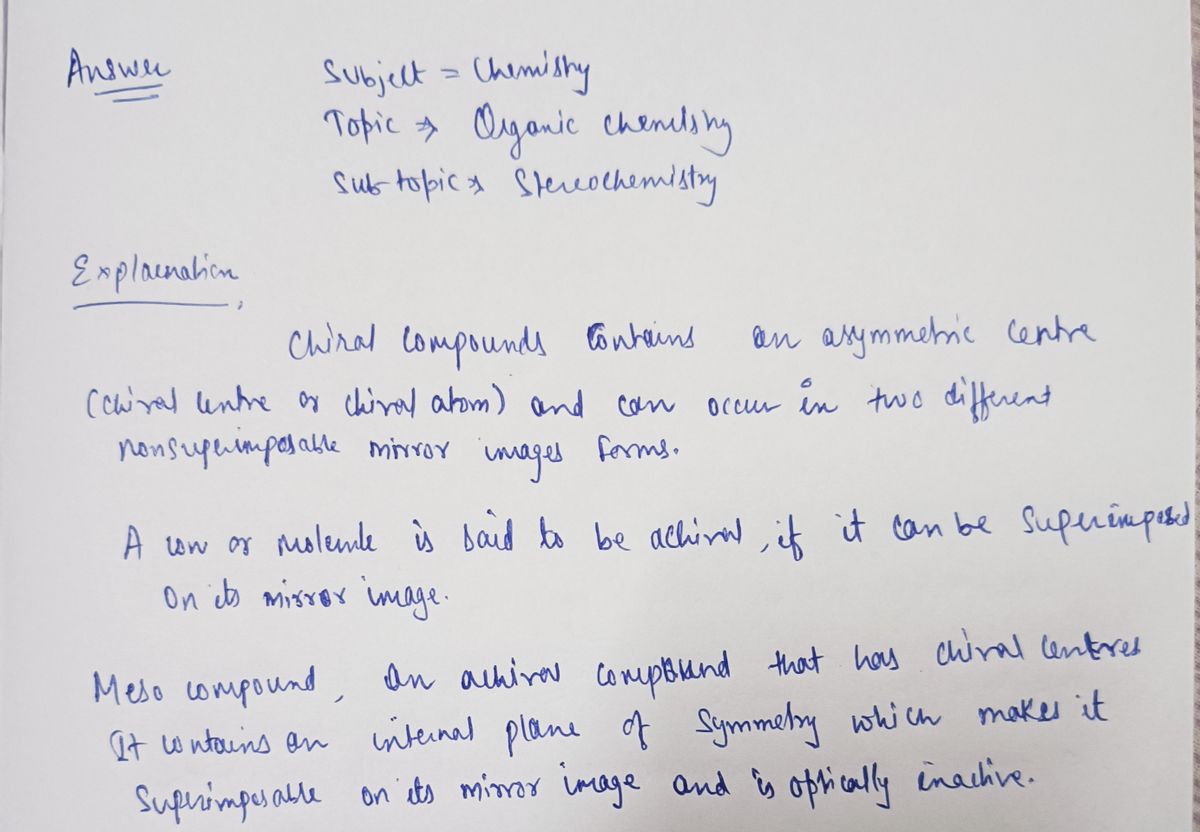 Answer
Subject = Chemistry
Topic ⇒ Organic chemistry
Sub-topic ⇒ Stereochemistry
Explaination,
Chiral compounds contains an asymmetric centre
(chiral centre or chiral atom) and can occur in two different
nonsuperimposable mirror images forms.
A ion or molecule is said to be achiral, if it can be superimposed
on its mirror image.
Meso compound, an achiral compound that has chiral centres
It contains an internal plane of symmetry which makes it
superimposable on its mirror image and is optically inactive.